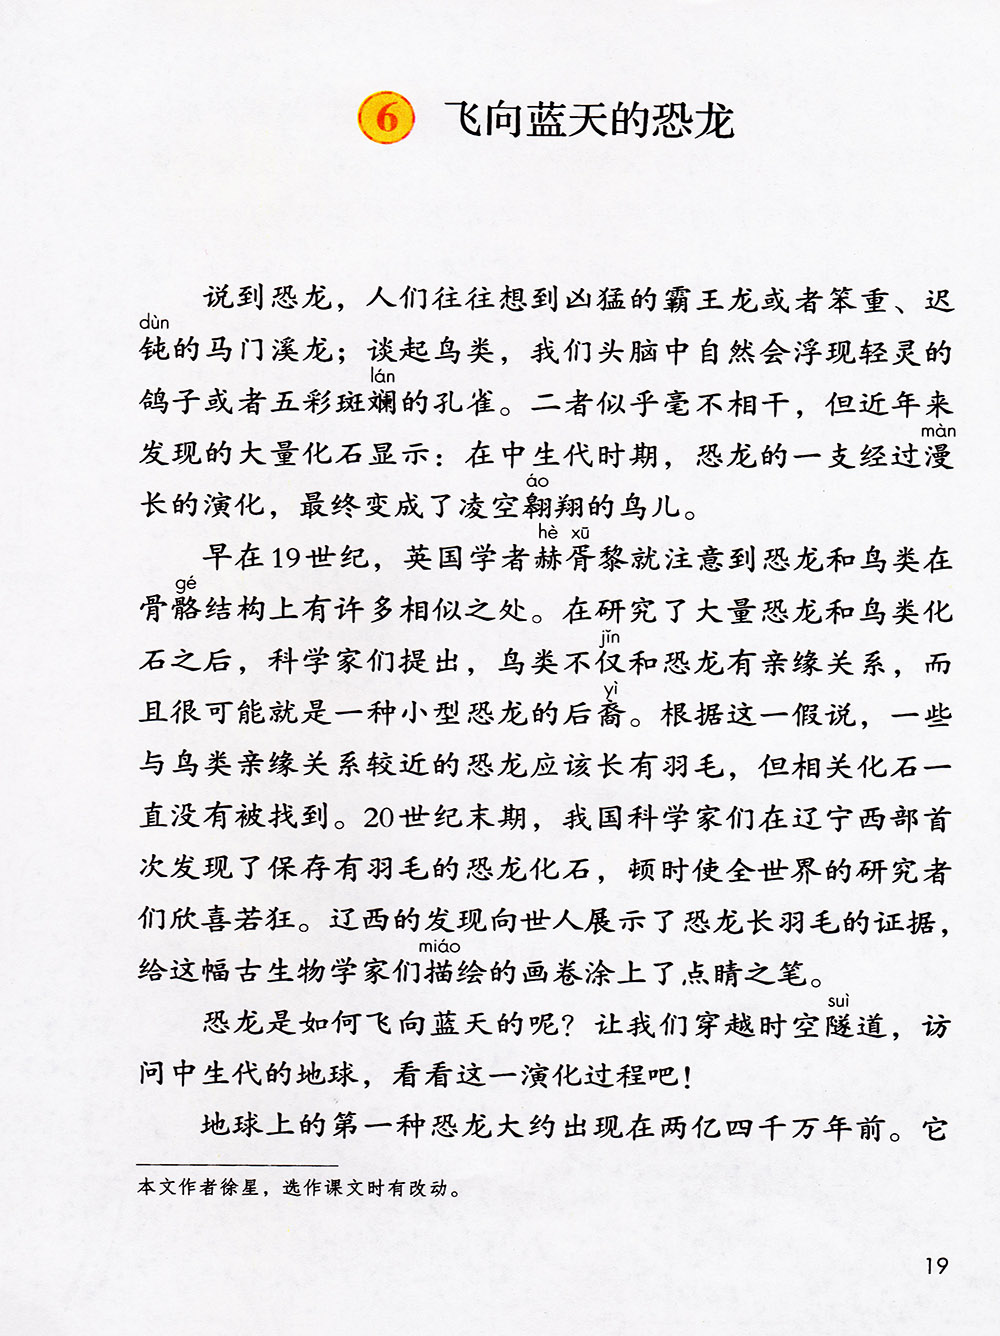 6 飞向蓝天的恐龙
说到恐龙，人们往往想到凶猛的霸王龙或者笨重、迟
dùn
钝的马门溪龙；谈起鸟类，我们头脑中自然会浮现轻灵的
lán
鸽子或者五彩斑斓的孔雀。二者似乎毫不相干，但近年来
màn
发现的大量化石显示：在中生代时期，恐龙的一支经过漫
áo
长的演化，最终变成了凌空翱翔的鸟儿。
hè xū
早在19世纪，英国学者赫胥黎就注意到恐龙和鸟类在
gé
骨骼结构上有许多相似之处。在研究了大量恐龙和鸟类化
jǐn
石之后，科学家们提出，鸟类不仅和恐龙有亲缘关系，而
yì
且很可能就是一种小型恐龙的后裔。根据这一假说，一些
与鸟类亲缘关系较近的恐龙应该长有羽毛，但相关化石一
直没有被找到。20世纪末期，我国科学家们在辽宁西部首
次发现了保存有羽毛的恐龙化石，顿时使全世界的研究者
们欣喜若狂。辽西的发现向世人展示了恐龙长羽毛的证据，
miáo
给这幅古生物学家们描绘的画卷涂上了点睛之笔。
suì
恐龙是如何飞向蓝天的呢？让我们穿越时空隧道，访
问中生代的地球，看看这一演化过程吧！
地球上的第一种恐龙大约出现在两亿四千万年前。它
本文作者徐星，选作课文时有改动。
19